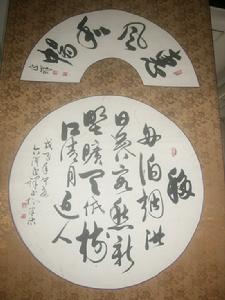 惠風和暢
移
舟泊烟渚
日暮客愁新
野曠天低樹
江清月近人